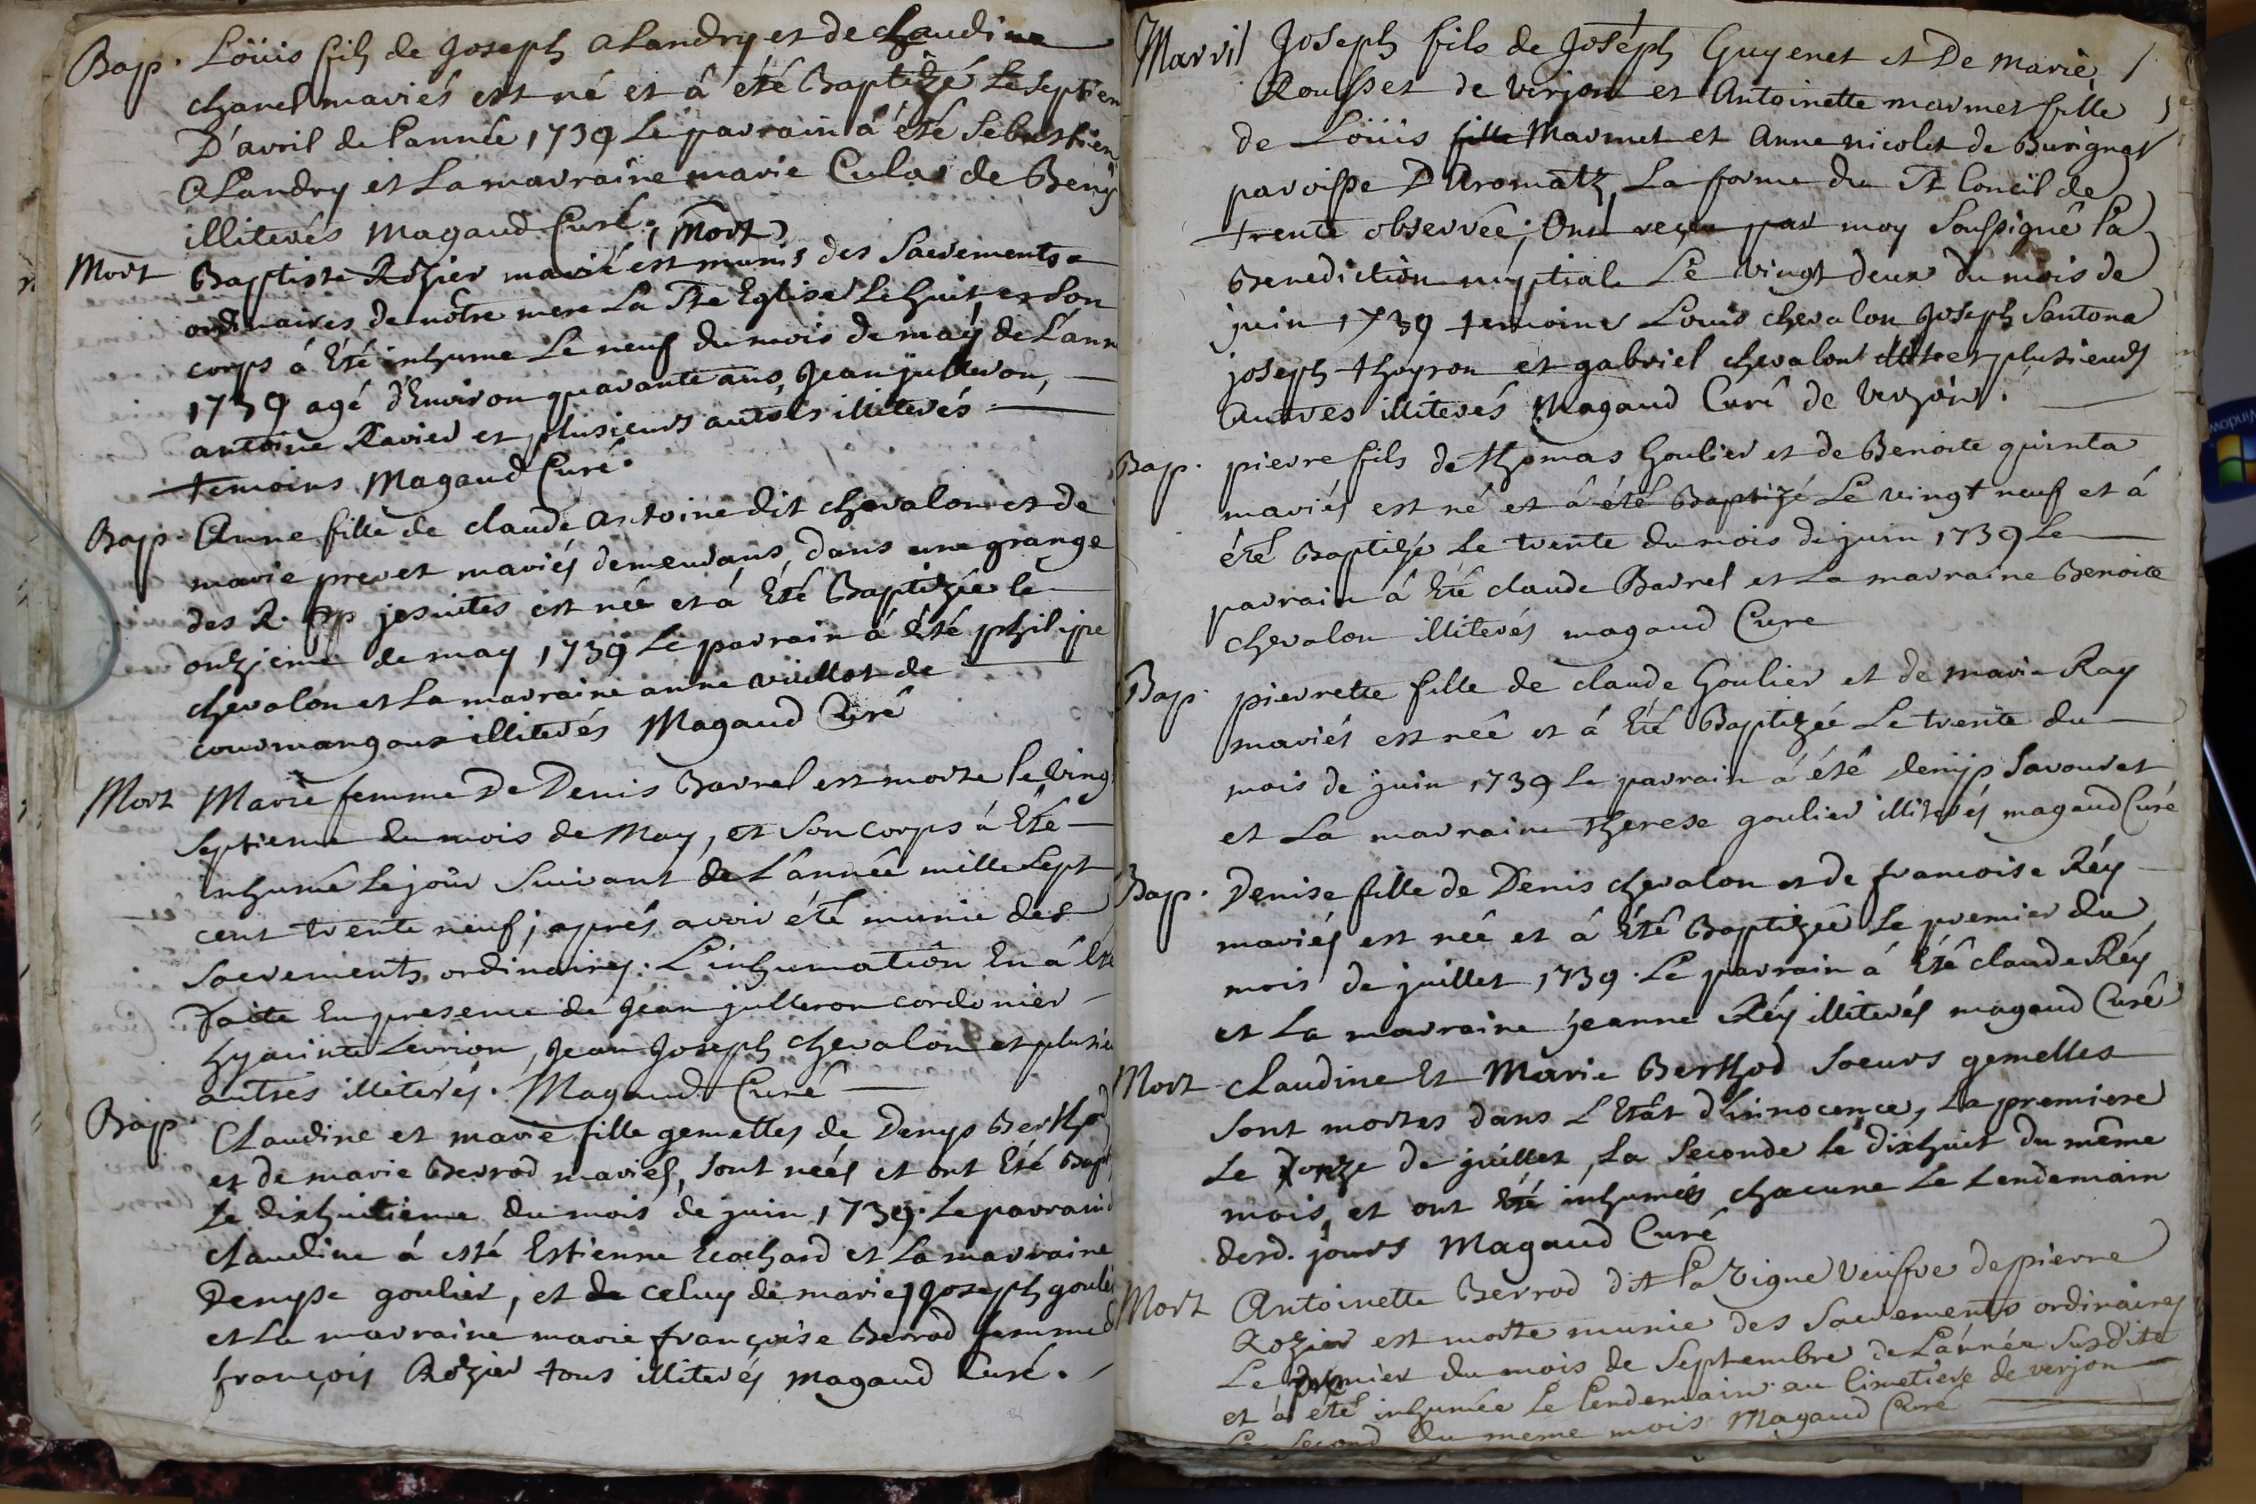 Bap. Loüis fils de Joseph alandry et de claudine
chanel mariés est né et â été Baptizé Le septiem
D'avril de l'année 1739 Le parrain â été Sebastien
aLandry et La marraine marie Culas de Beny
illiterés Magaud Curé.
Mort Baptiste Rozier marié est (mort) munis des Sacrements
ordinaires de nôtre mere La Ste Eglise Le huit et son
corps â Eté inhumé Le neuf du mois de maÿ de L'ann
1739 agé d'Environ quarante ans, Jean jullieron,
antoine Ravier et plusieurs autres illiterés
temoins Magaud Curé.
Bap. Anne fille de claude antoine dit chevalon et de
marie prevet mariés demeurans, dans une grange
des R. Pp jesuites est née et á Eté Baptizée le
onzieme de may 1739 Le parrain á Eté philipe
chevalon et La marraine anne vuillot de
courmangoux illiterés Magaud Curé
Mort Marie femme De Denis Barrel est morte le ving
septieme du mois de May, et son corps á Eté
inhumé Le jour suivant de L'année mille sept
cent trente neuf; aprés avoir été munie des
sacrements ordinaires. L'inhumation En á Eté
faite En presence de jean julleron cordonier
hyacinte Levrion, Jean Joseph chevalon et plusieu
autres illiterés. Magaud Curé
Bap. Claudine et marie fille gemelles de Denys Berthod
et de marie Berrod mariés, sont neés et ont Eté Bap
Le dixhuitieme du mois de juin 1739. Le parrain d
claudine á esté Estienne Ecochard et La marraine
Denyse goulier, et de celuy de marie, Joseph gouli
et La marraine marie françoise Berrod femme d
françois Rozier tous illiterés magaud Curé.
Mar vil Joseph fils de Joséph Guyenet et De marie
Rousset de Verjon et Antoinette marmet fille
de Loüis fille Marmet et anne nicolet de Burignat
paroisse D'Aromatz La forme du St Concil de
trente observée; Ont reçu par moy soussigné la
Benediction nuptiale Le vingt deux du mois de
juin 1739 temoins Louis chevalon Joseph Santona
joseph thoyron et gabriel chevalont et plusieurs
Autres illiterés Magaud Curé de Verjon.
Bap. pierre fils de thomas Goulier et de Benoite quinta
mariés est né et â été Baptizé Le vingt neuf et á
été Baptizé Le trente du mois de juin 1739 Le
parrain â Eté claude Barrel et La marraine Benoite
chevalon illiterés magaud Cure
Bap. pierrette fille de claude Goulier et de marie Ray
mariés est née et á Eté Baptizée Le trente du
mois de juin 1739 Le parrain á été Denys Savouret
et La marraine therese goulier illiterés magaud Curé
Bap. Denise fille de Denis chevalon et de francoise Réy
mariés est née et â Eté Baptizée Le premier du
mois de juillet 1739. Le parrain á Eté claude Réy
et La marraine jeanne Réy illiterés magaud Curé
Mort claudine Et Marie Berthod soeurs gemelles
sont mortes dans L'Etat d'innocence, La premiere
Le donze de juillet, La seconde le dixhuit du même
mois, et ont Eté inhumés chacune Le Lendemain
desd. jours Magaud Curé
Mort Antoinette Berrod dit La Vigne veufve de pierre
Rozier est morte munie des Sacrements ordinaires
Le premier du mois de Septembre de L'année susdite
et á été inhumée Le Lendemain au Cimetiere de verjon
Le second du meme mois Magaud Curé